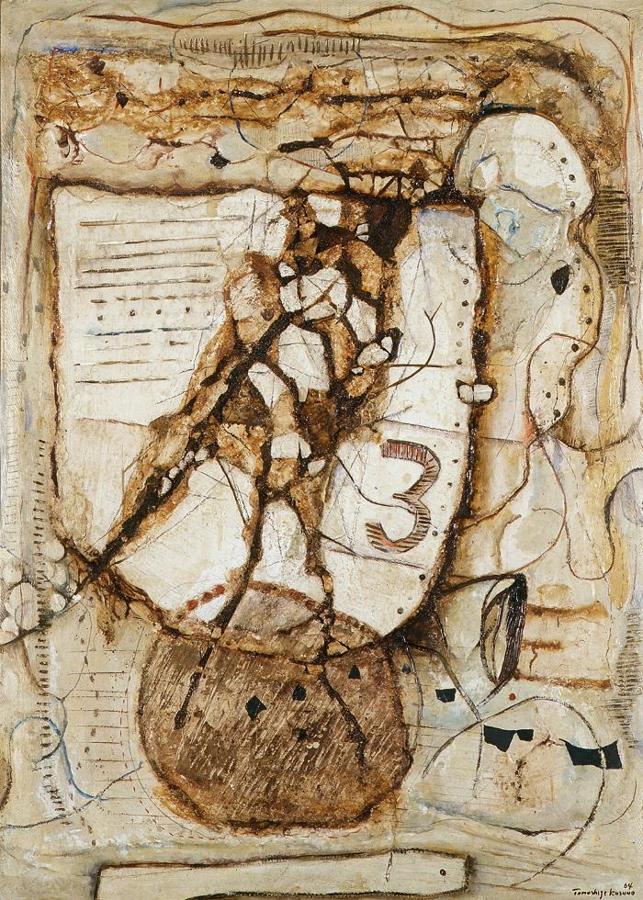 3
64
Tomoshige Kusuno